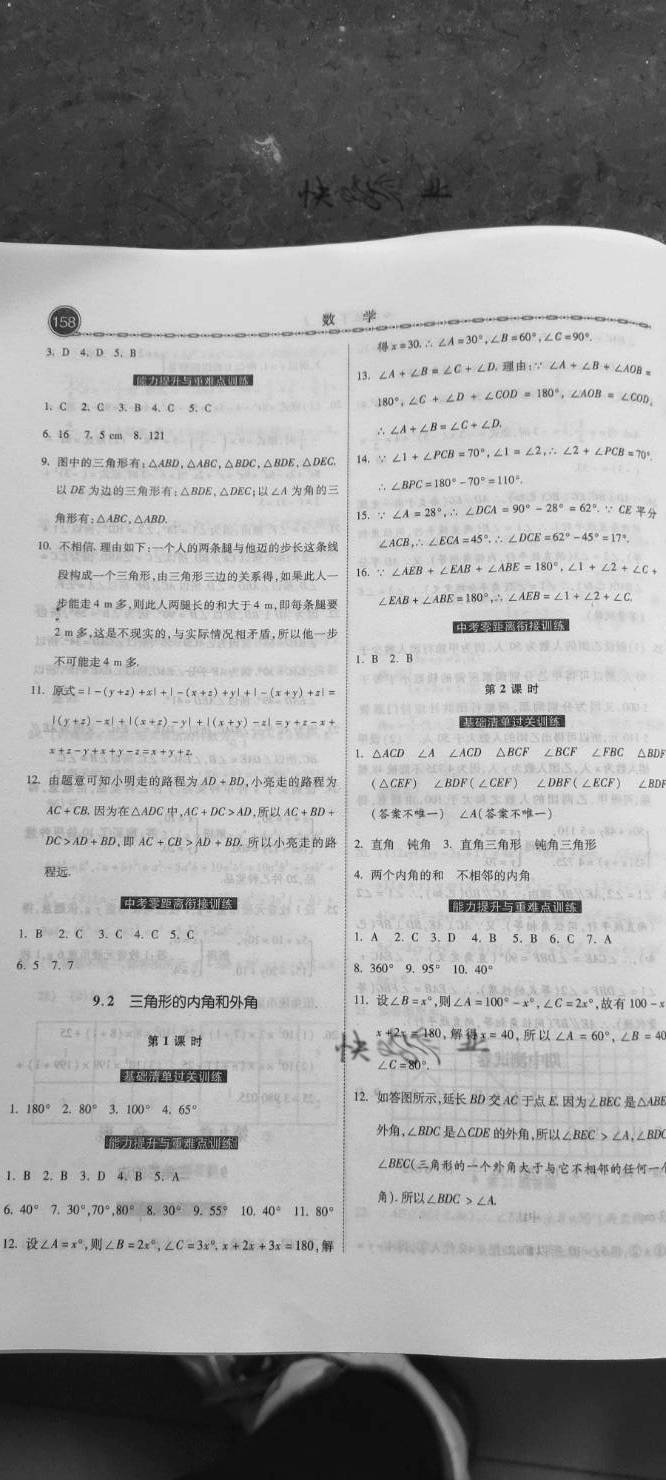 158
数 学
3. D 4. D 5. B
能力提升与重难点训练
1. C 2. C 3. B 4. C 5. C
6. 16 7. 5 cm 8. 121
9. 图中的三角形有:△ABD,△ABC,△BDC,△BDE,△DEC.
以 DE 为边的三角形有:△BDE,△DEC;以∠A 为角的三
角形有:△ABC,△ABD.
10. 不相信. 理由如下:一个人的两条腿与他迈的步长这条线
段构成一个三角形,由三角形三边的关系得,如果此人一
步能走 4 m 多,则此人两腿长的和大于 4 m,即每条腿要
2 m 多,这是不现实的,与实际情况相矛盾,所以他一步
不可能走 4 m 多.
11. 原式=|-(y+z)+x|+|-(x+z)+y|+|-(x+y)+z|=
|(y+z)-x|+|(x+z)-y|+|(x+y)-z|=y+z-x+
x+z-y+x+y-z=x+y+z.
12. 由题意可知小明走的路程为 AD+BD,小亮走的路程为
AC+CB. 因为在△ADC 中,AC+DC>AD,所以 AC+BD+
DC>AD+BD,即 AC+CB>AD+BD. 所以小亮走的路
程远.
中考零距离衔接训练
1. B 2. C 3. C 4. C 5. C
6. 5 7. 7
9.2 三角形的内角和外角
第 1 课 时
基础清单过关训练
1. 180° 2. 80° 3. 100° 4. 65°
能力提升与重难点训练
1. B 2. B 3. D 4. B 5. A
6. 40° 7. 30°,70°,80° 8. 30° 9. 55° 10. 40° 11. 80°
12. 设∠A=x°,则∠B=2x°,∠C=3x°. x+2x+3x=180,解
得 x=30. ∴ ∠A=30°,∠B=60°,∠C=90°.
13. ∠A+∠B=∠C+∠D. 理由:∵ ∠A+∠B+∠AOB=
180°,∠C+∠D+∠COD=180°,∠AOB=∠COD,
∴ ∠A+∠B=∠C+∠D.
14. ∵ ∠1+∠PCB=70°,∠1=∠2,∴ ∠2+∠PCB=70°.
∴ ∠BPC=180°-70°=110°.
15. ∵ ∠A=28°,∴ ∠DCA=90°-28°=62°. ∵ CE 平分
∠ACB,∴ ∠ECA=45°. ∴ ∠DCE=62°-45°=17°.
16. ∵ ∠AEB+∠EAB+∠ABE=180°,∠1+∠2+∠C+
∠EAB+∠ABE=180°,∴ ∠AEB=∠1+∠2+∠C.
中考零距离衔接训练
1. B 2. B
第 2 课 时
基础清单过关训练
1. △ACD ∠A ∠ACD △BCF ∠BCF ∠FBC △BDF
(△CEF) ∠BDF(∠CEF) ∠DBF(∠ECF) ∠BDF
(答案不唯一) ∠A(答案不唯一)
2. 直角 钝角 3. 直角三角形 钝角三角形
4. 两个内角的和 不相邻的内角
能力提升与重难点训练
1. A 2. C 3. D 4. B 5. B 6. C 7. A
8. 360° 9. 95° 10. 40°
11. 设∠B=x°,则∠A=100°-x°,∠C=2x°,故有 100-x
x+2x=180,解得 x=40,所以∠A=60°,∠B=40
∠C=80°.
12. 如答图所示,延长 BD 交 AC 于点 E. 因为∠BEC 是△ABE
外角,∠BDC 是△CDE 的外角,所以∠BEC>∠A,∠BDC
∠BEC(三角形的一个外角大于与它不相邻的任何一个
角). 所以∠BDC>∠A.